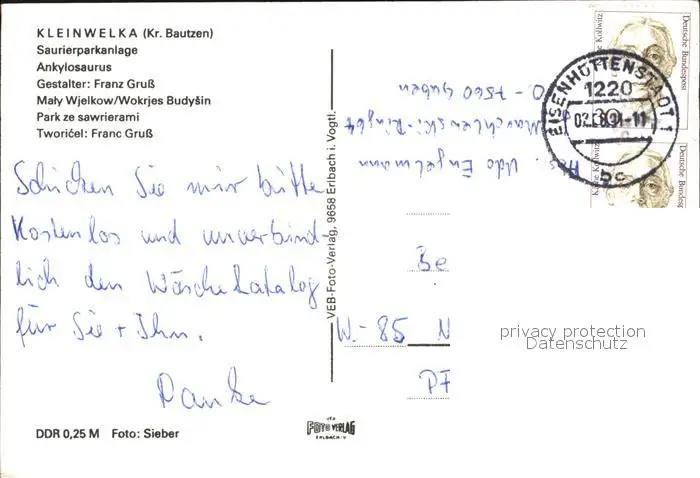 KLEINWELKA (Kr. Bautzen)
Saurierparkanlage
Ankylosaurus
Gestalter: Franz Gruß
Mały Wjelkow/Wokrjes Budyšin
Park ze sawrierami
Tworićel: Franc Gruß
Schicken Sie mir bitte
Kostenlos und unverbind-
lich den Wäschekatalog
für Sie + Ihn.
Danke
DDR 0,25 M Foto: Sieber
VEB-Foto-Verlag, 9658 Erlbach i. Vogtl.
FOTO VERLAG
ERLBACH/V
Abs. Udo Engelmann
O - 7560 Guben
Be
W.-85 N
PF
Deutsche Bundespost
Käthe Kollwitz
EISENHÜTTENSTADT 1
1220
-11
bc
privacy protection
Datenschutz